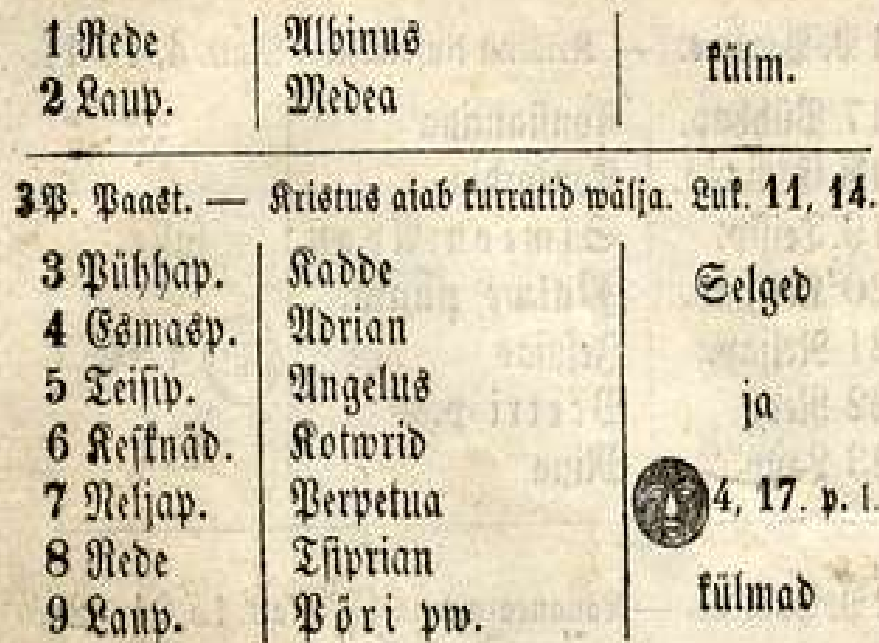 1 Rede Albinus külm.
2 Laup. Medea
3 P. Paast. — Kristus aiab kurratid wälja. Luk. 11, 14.
3 Pühhap. Kadde Selged
4 Esmasp. Adrian
5 Teisip. Angelus ja
6 Kesknäd. Kotwrid
7 Neljap. Perpetua 4, 17. p. l.
8 Rede Tsiprian
9 Laup. Pöri pw. külmad